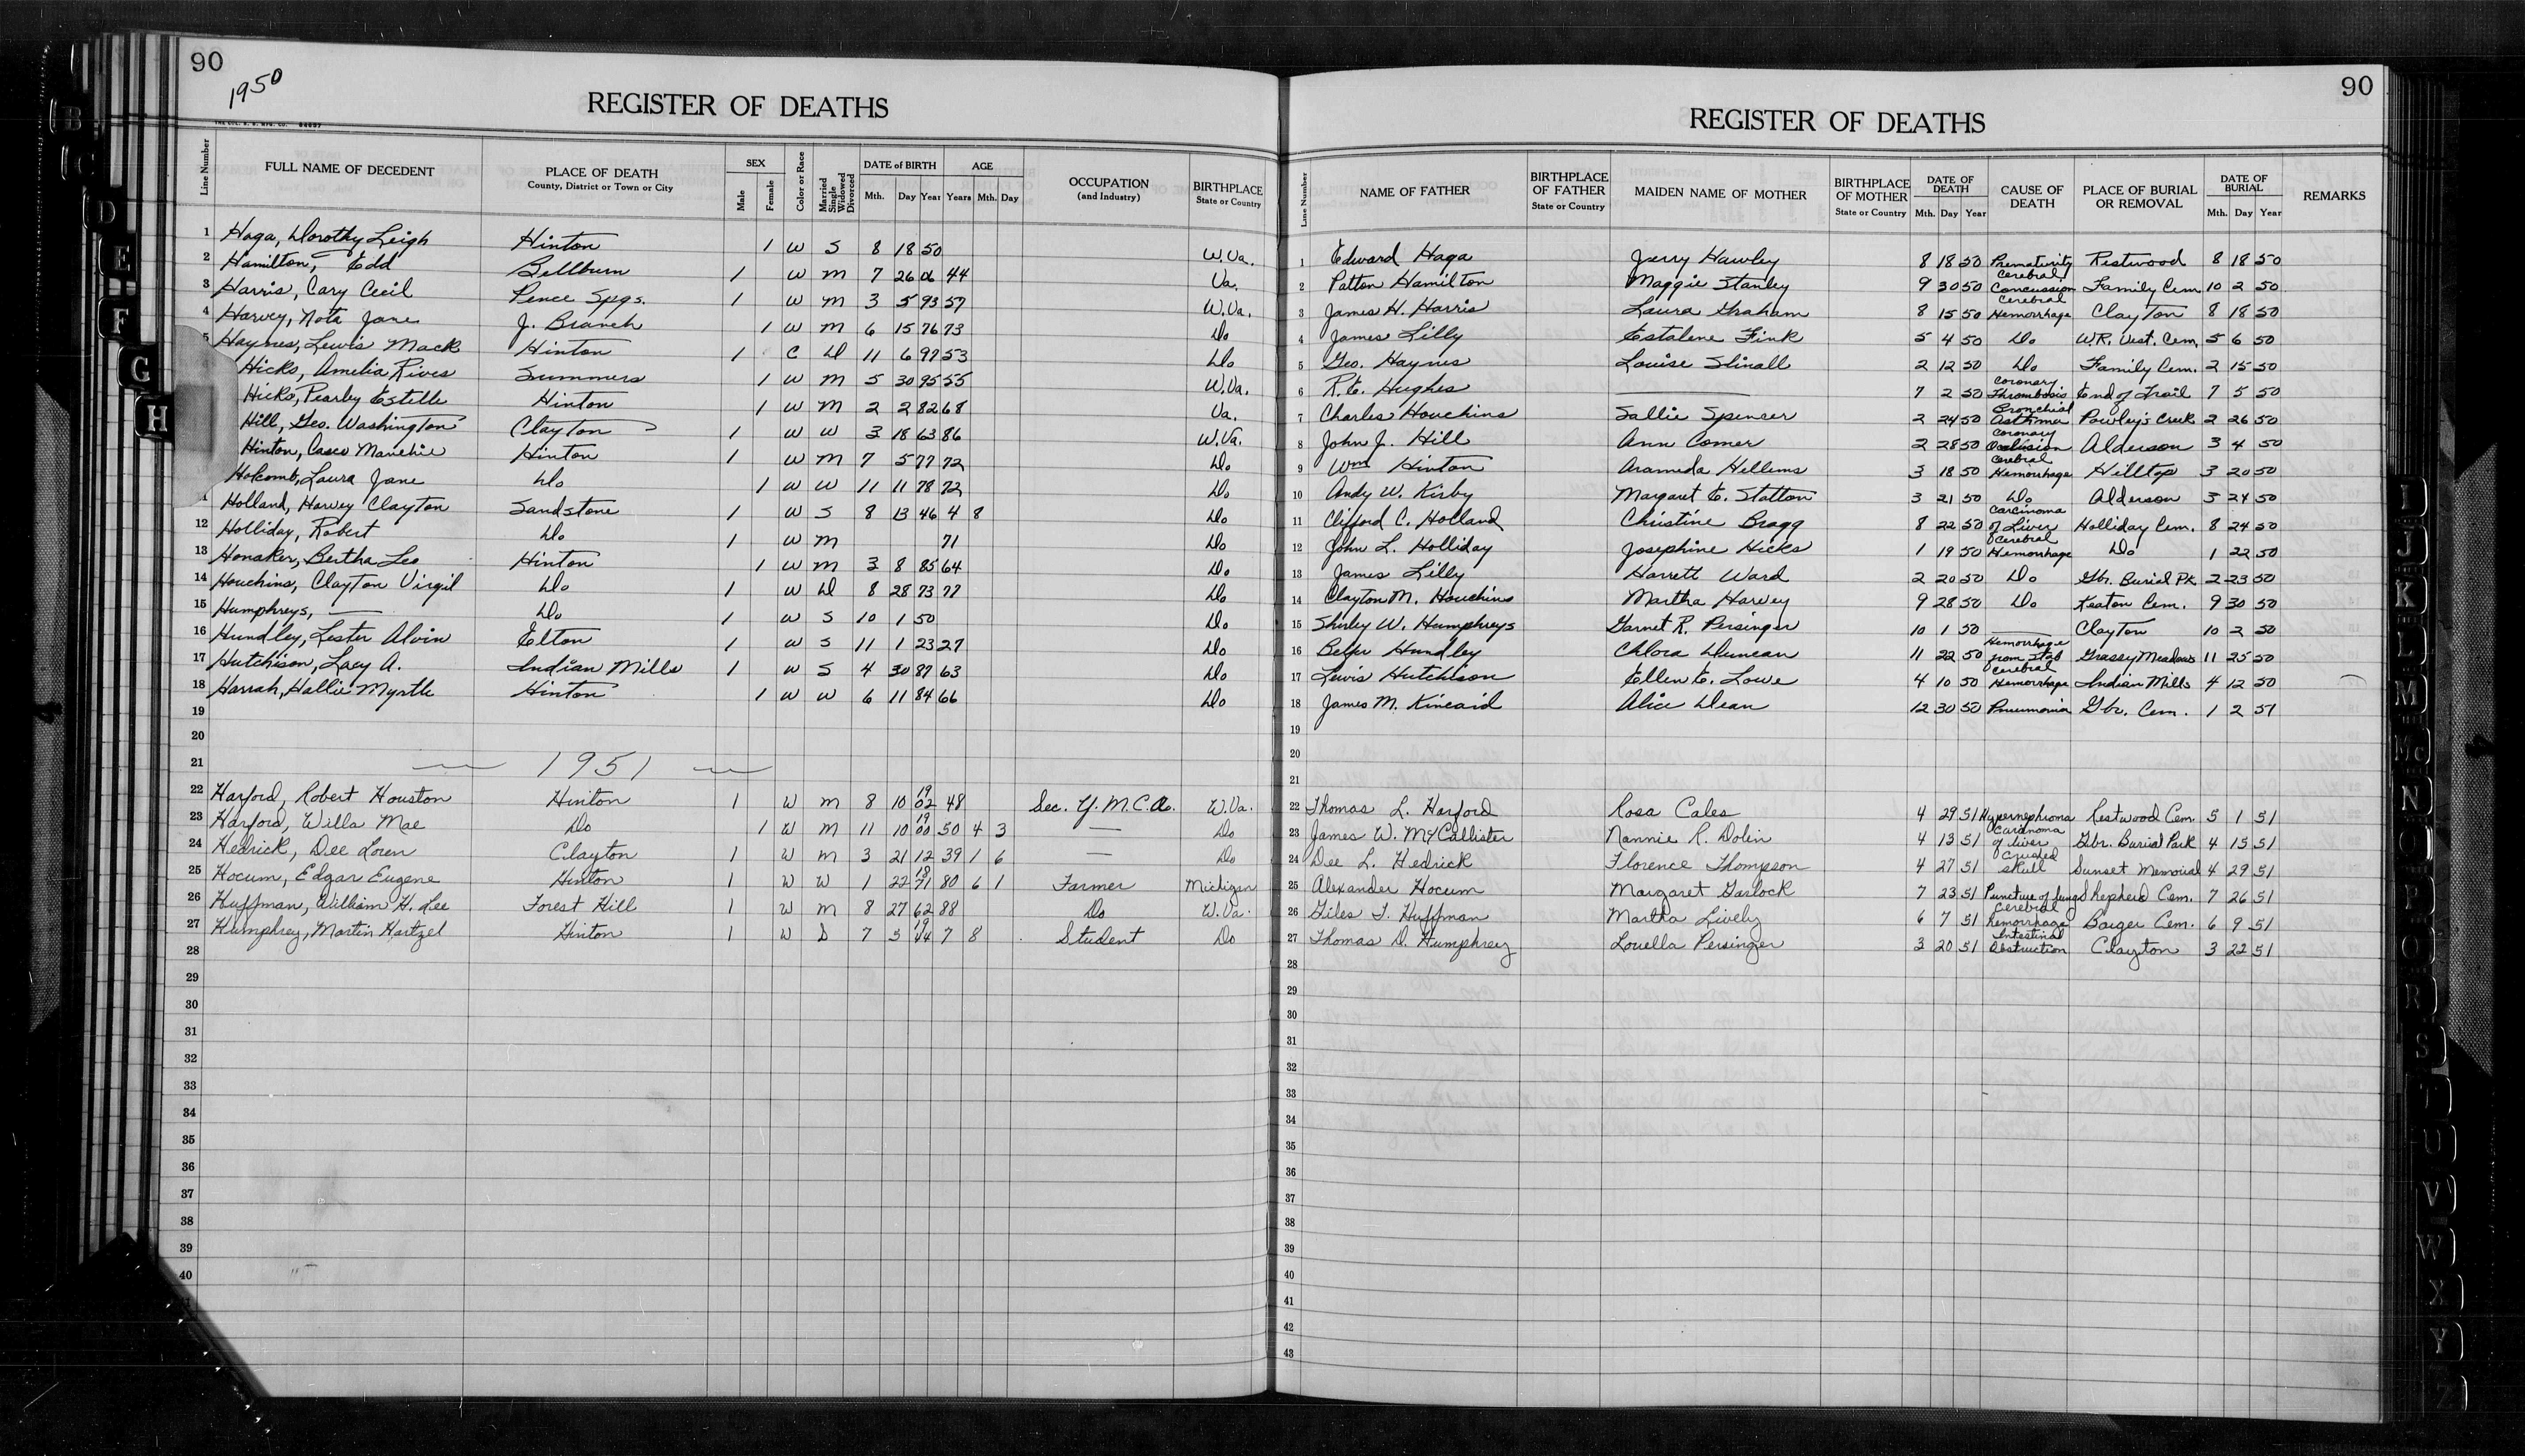 90
1950
REGISTER OF DEATHS
Line Number FULL NAME OF DECEDENT PLACE OF DEATH County, District or Town or City SEX Male Female Color or Race Married Single Widowed Divorced DATE of BIRTH Mth. Day Year AGE Years Mth. Day OCCUPATION (and Industry) BIRTHPLACE State or Country
1 Haga, Dorothy Leigh Hinton 1 W S 8 18 50 W.Va.
2 Hamilton, Edd Bellburn 1 W M 7 26 06 44 Va.
3 Harris, Cary Cecil Pence Spgs. 1 W M 3 5 93 57 W.Va.
4 Harvey, Nota Jane J. Branch 1 W M 6 15 76 73 Do
5 Haynes, Lewis Mack Hinton 1 C D 11 6 97 53 Do
Hicks, Amelia Rives Summers 1 W M 5 30 95 55 W.Va.
Hicks, Pearley Estelle Hinton 1 W M 2 2 82 68 Va.
Hill, Geo. Washington Clayton 1 W W 3 18 63 86 W.Va.
Hinton, Casco Hinton 1 W M 7 5 77 72 Do
Holcomb, Laura Jane Do 1 W W 11 11 78 72 Do
1 Holland, Harvey Clayton Sandstone 1 W S 8 13 46 4 8 Do
12 Holliday, Robert Do 1 W M 71 Do
13 Honaker, Bertha Leo Hinton 1 W M 3 8 85 64 Do
14 Houchins, Clayton Virgil Do 1 W D 8 28 73 77 Do
15 Humphreys, — Do 1 W S 10 1 50 Do
16 Hundley, Lester Alvin Elton 1 W S 11 1 23 27 Do
17 Hutchison, Lacy A. Indian Mills 1 W S 4 30 87 63 Do
18 Harrah, Hallie Myrtle Hinton 1 W W 6 11 84 66 Do
19
20
21 1951
22 Harford, Robert Houston Hinton 1 W M 8 10 1902 48 Sec. Y.M.C.A. W.Va.
23 Harford, Willa Mae Do 1 W M 11 10 1900 50 4 3 — Do
24 Hedrick, Dee Loren Clayton 1 W M 3 21 12 39 1 6 — Do
25 Hocum, Edgar Eugene Hinton 1 W W 1 22 1871 80 6 1 Farmer Michigan
26 Huffman, William H. Lee Forest Hill 1 W M 8 27 62 88 Do W.Va.
27 Humphrey, Martin Hartzel Hinton 1 W S 7 5 1944 7 8 Student Do
28
29
30
31
32
33
34
35
36
37
38
39
40
90
REGISTER OF DEATHS
Line Number NAME OF FATHER BIRTHPLACE OF FATHER State or Country MAIDEN NAME OF MOTHER BIRTHPLACE OF MOTHER State or Country DATE OF DEATH Mth. Day Year CAUSE OF DEATH PLACE OF BURIAL OR REMOVAL DATE OF BURIAL Mth. Day Year REMARKS
1 Edward Haga Jerry Hawley 8 18 50 Prematurity Restwood 8 18 50
2 Patton Hamilton Maggie Stanley 9 30 50 Cerebral Concussion Family Cem 10 2 50
3 James H. Harris Laura Graham 8 15 50 Cerebral Hemorrhage Clayton 8 18 50
4 James Lilly Estalene Fink 5 4 50 Do W.R. Vist. Cem. 5 6 50
5 Geo. Haynes Louise Stinall 2 12 50 Do Family Cem. 2 15 50
6 R.E. Hughes — 7 2 50 Coronary Thrombosis End of Trail 7 5 50
7 Charles Houchins Sallie Spencer 2 24 50 Bronchial Asthma Powley's Creek 2 26 50
8 John J. Hill Ann Comer 2 28 50 Coronary Occlusion Alderson 3 4 50
9 Wm Hinton Arameda Hellems 3 18 50 Cerebral Hemorrhage Hilltop 3 20 50
10 Andy W. Kirby Margaret E. Statton 3 21 50 Do Alderson 3 24 50
11 Clifford C. Holland Christine Bragg 8 22 50 Carcinoma of Liver Holliday Cem. 8 24 50
12 John L. Holliday Josephine Hicks 1 19 50 Cerebral Hemorrhage Do 1 22 50
13 James Lilly Harrett Ward 2 20 50 Do Gbr. Burial Pk. 2 23 50
14 Clayton M. Houchins Martha Harvey 9 28 50 Do Keaton Cem. 9 30 50
15 Shirley W. Humphreys Garnet R. Persinger 10 1 50 Clayton 10 2 50
16 Hundley Chlora Duncan 11 22 50 Hemorrhage from Stab Grassy Meadows 11 25 50
17 Lewis Hutchison Ellen E. Lowe 4 10 50 Cerebral Hemorrhage Indian Mills 4 12 50
18 James M. Kincaid Alice Dean 12 30 50 Pneumonia Gbr. Cem. 1 2 51
19
20
21
22 Thomas L. Harford Rosa Cales 4 29 51 Hypernephroma Restwood Cem. 5 1 51
23 James W. McCallister Nannie R. Dolin 4 13 51 Carcinoma of liver Gbr. Burial Park 4 15 51
24 Dee L. Hedrick Florence Thompson 4 27 51 Crushed skull Sunset Memorial 4 29 51
25 Alexander Hocum Margaret Garlock 7 23 51 Puncture of lungs Shepherd Cem. 7 26 51
26 Giles T. Huffman Martha Lively 6 7 51 Cerebral hemorrhage Barger Cem. 6 9 51
27 Thomas D. Humphrey Louella Persinger 3 20 51 Intestinal Obstruction Clayton 3 22 51
28
29
30
31
32
33
34
35
36
37
38
39
40
41
42
43
B
C
D
E
F
G
H
I
J
K
L
M
Mc
N
O
P
Q
R
S
T
U
V
W
X
Y
Z